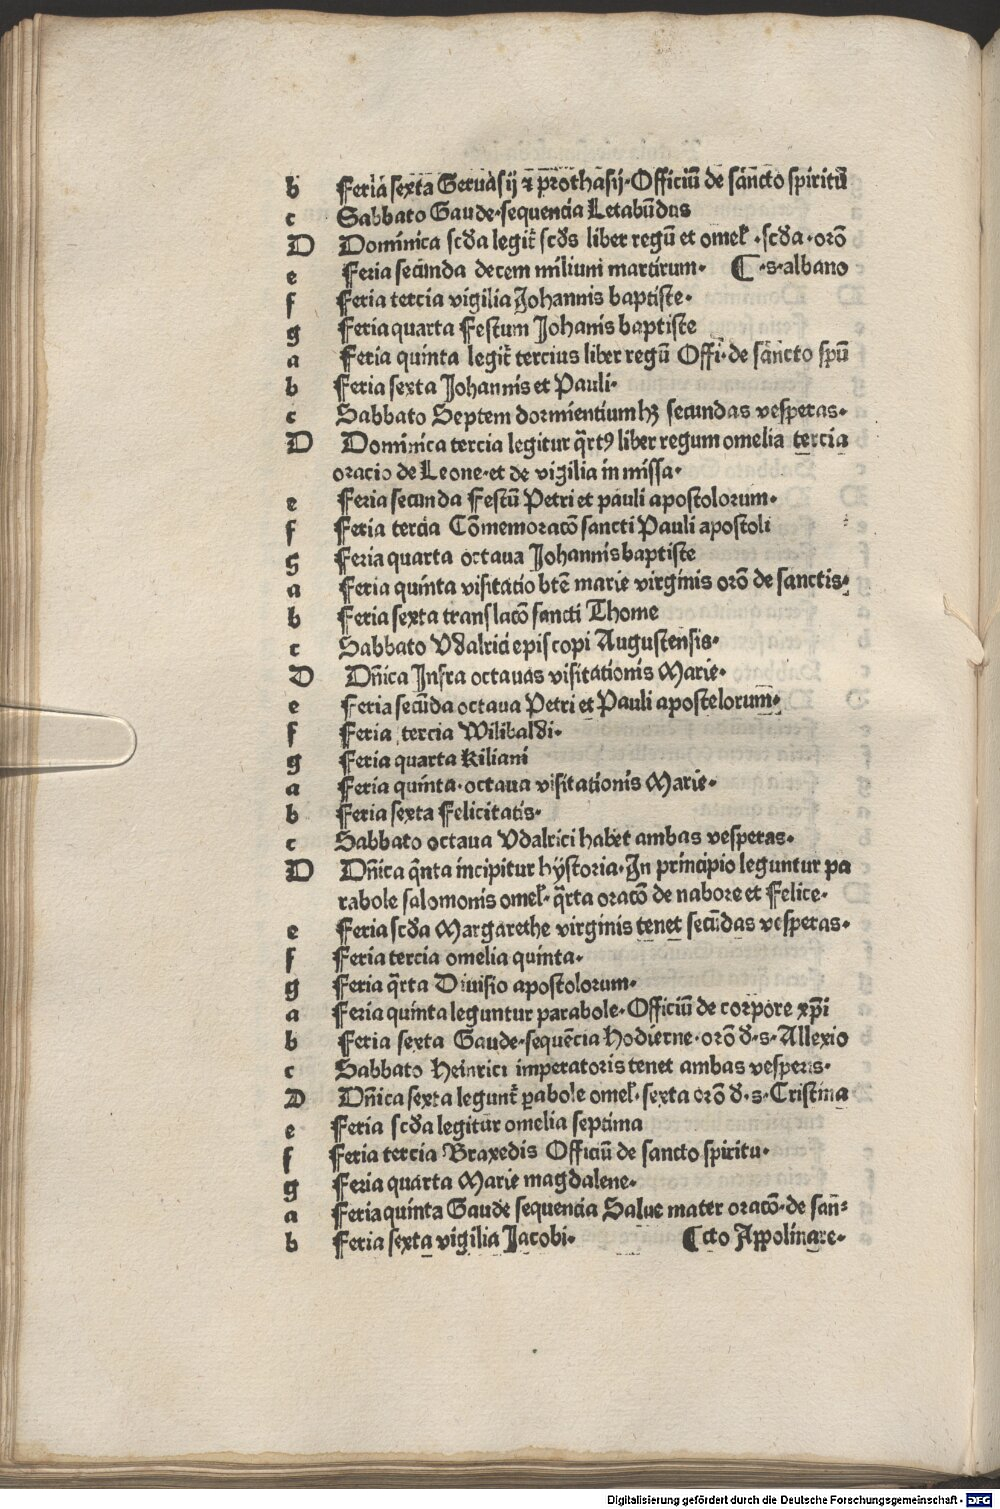 b Feria sexta Geruasij ⁊ prothasij. Officiū de sancto spiritū
c Sabbato Gaude. sequencia Letabūdus
D Dominica scďa legit᷑ scďs liber regū et omeł. scďa. orō
e Feria secunda decem milium martirum. ¶ .s. albano
f Feria tercia vigilia Johannis baptiste.
g Feria quarta Festum Johānis baptiste
a Feria quinta legit᷑ tercius liber regū Offi. de sancto spū
b Feria sexta Johannis et Pauli.
c Sabbato Septem dormientium hꝫ secundas vesperas.
D Dominica tercia legitur q̄rtꝰ liber regum omelia tercia
oracio de Leone. et de vigilia in missa.
e Feria secunda Festū Petri et pauli apostolorum.
f Feria tercia Cōmemoracō sancti Pauli apostoli
g Feria quarta octaua Johannis baptiste
a Feria quinta visitatio btē marie virginis orō de sanctis.
b Feria sexta translacō sancti Thome
c Sabbato Vdalrici episcopi Augustensis.
D Dñica Infra octauas visitationis Marie.
e Feria secūda octaua Petri et Pauli apostelorum.
f Feria tercia Wilibaldi.
g Feria quarta Kiliani
a Feria quinta. octaua visitationis Marie.
b Feria sexta Felicitatis.
c Sabbato octaua Vdalrici habet ambas vesperas.
D Dñica q̄nta incipitur hystoria. In principio leguntur pa
rabole salomonis omeł. q̄rta oracō de nabore et Felice.
e Feria scďa Margarethe virginis tenet secūdas vesperas.
f Feria tercia omelia quinta.
g Feria q̄rta Diuisio apostolorum.
a Feria quinta leguntur parabole. Officiū de corpore xp̄i
b Feria sexta Gaude. sequēcia Hodierne. orō ď. s. Allexio
c Sabbato Heinrici imperatoris tenet ambas vesperas.
D Dñica sexta legunt᷑ ꝑabole omeł. sexta orō ď. s. Cristina
e Feria scďa legitur omelia septima
f Feria tercia Braxedis Officiū de sancto spiritu.
g Feria quarta Marie magdalene.
a Feria quinta Gaude sequencia Salue mater oracō. de san⸗
b Feria sexta vigilia Jacobi. ¶cto Appolinare.
Digitalisierung gefördert durch die Deutsche Forschungsgemeinschaft - DFG